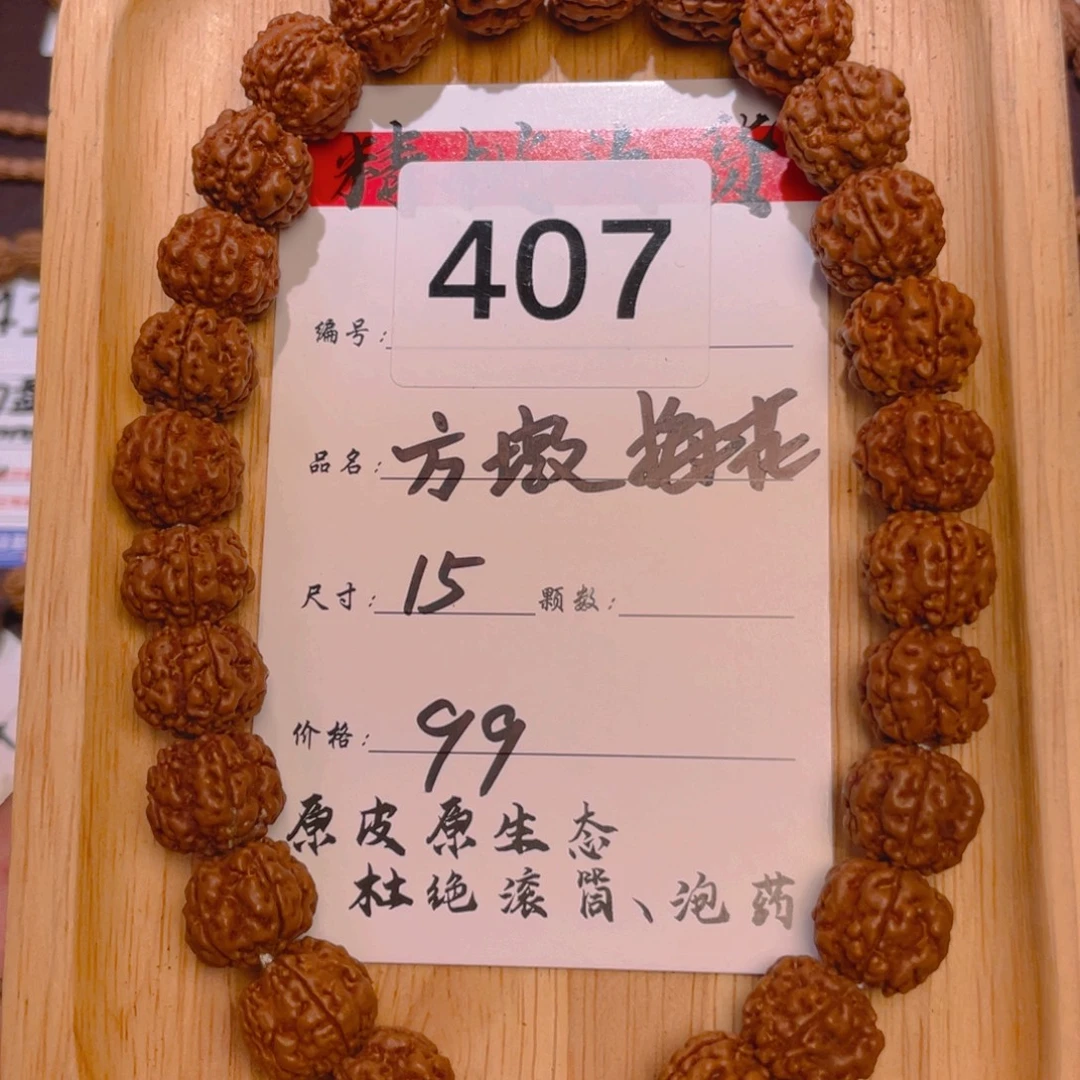 407
编号:
品名: 方墩
尺寸: 15 颗数:
价格: 99
原皮原生态
杜绝滚筒、泡药